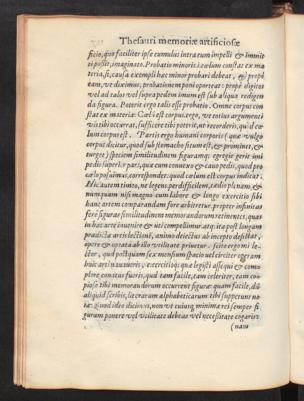 Thesauri memoriæ artificiosæ
ficio, quo faciliter ipse cumulus intra eum impelli & immit
ti possit, imaginato. Probatio minoris. cælum constat ex ma
teria. si, causa exempli hæc minor probari debeat, & prope
eam, ve diximus, probationem poni oporteat: propè digitos
vel ad talos vel supra pedem imum est sub aliqua redigen
da figura. Poterit ergo talis esse probatio. Omne corpus con
stat ex materia: Cæli est corpus. ergo, ve totius argumenti
vis tibi occurrat, sufficere tibi poterit, ut recorderis, quòd cæ
lum corpus est.
corpus dicitur, quod sub stomacho situm est, & prominet, &
turget) speciem similitudinem figuramq; egregiè gerit imi
pedis superi.
cælo posuimus, correspondet. quod cælum est corpus indicat.
Hic autem timeo, ne legens per difficilem, tædio plenam, &
num quam nisi magno cum labore & longo exercitio sibi
hanc artem comparandam fore arbitretur. propter infinitas
ferè figuræ similitudinem memorandorum retinentes, quas
in hac arte invenire & uti compellimur. atq; ita post longam
prædictæ artis lectionem, animo deiectus ab incepto desistat,
opere & optata ab illo utilitate privetur. scito ergo mi le
ctor, quòd postquam sex mensium spacio vel circiter operam
huic arti navaueris, & exercitioq; quæ legisti assequi & com
plere conatus fueris, quod tam facile, tam celeriter, tam con
piosè tibi memorandorum occurrent figuræ: quàm facile, dum
aliquid scribis, literarum alphabeticarum tibi suppetunt no
tæ. quod ideo
gurum ponere vel utilitate debeas vel necessitate cogaris.
(nam